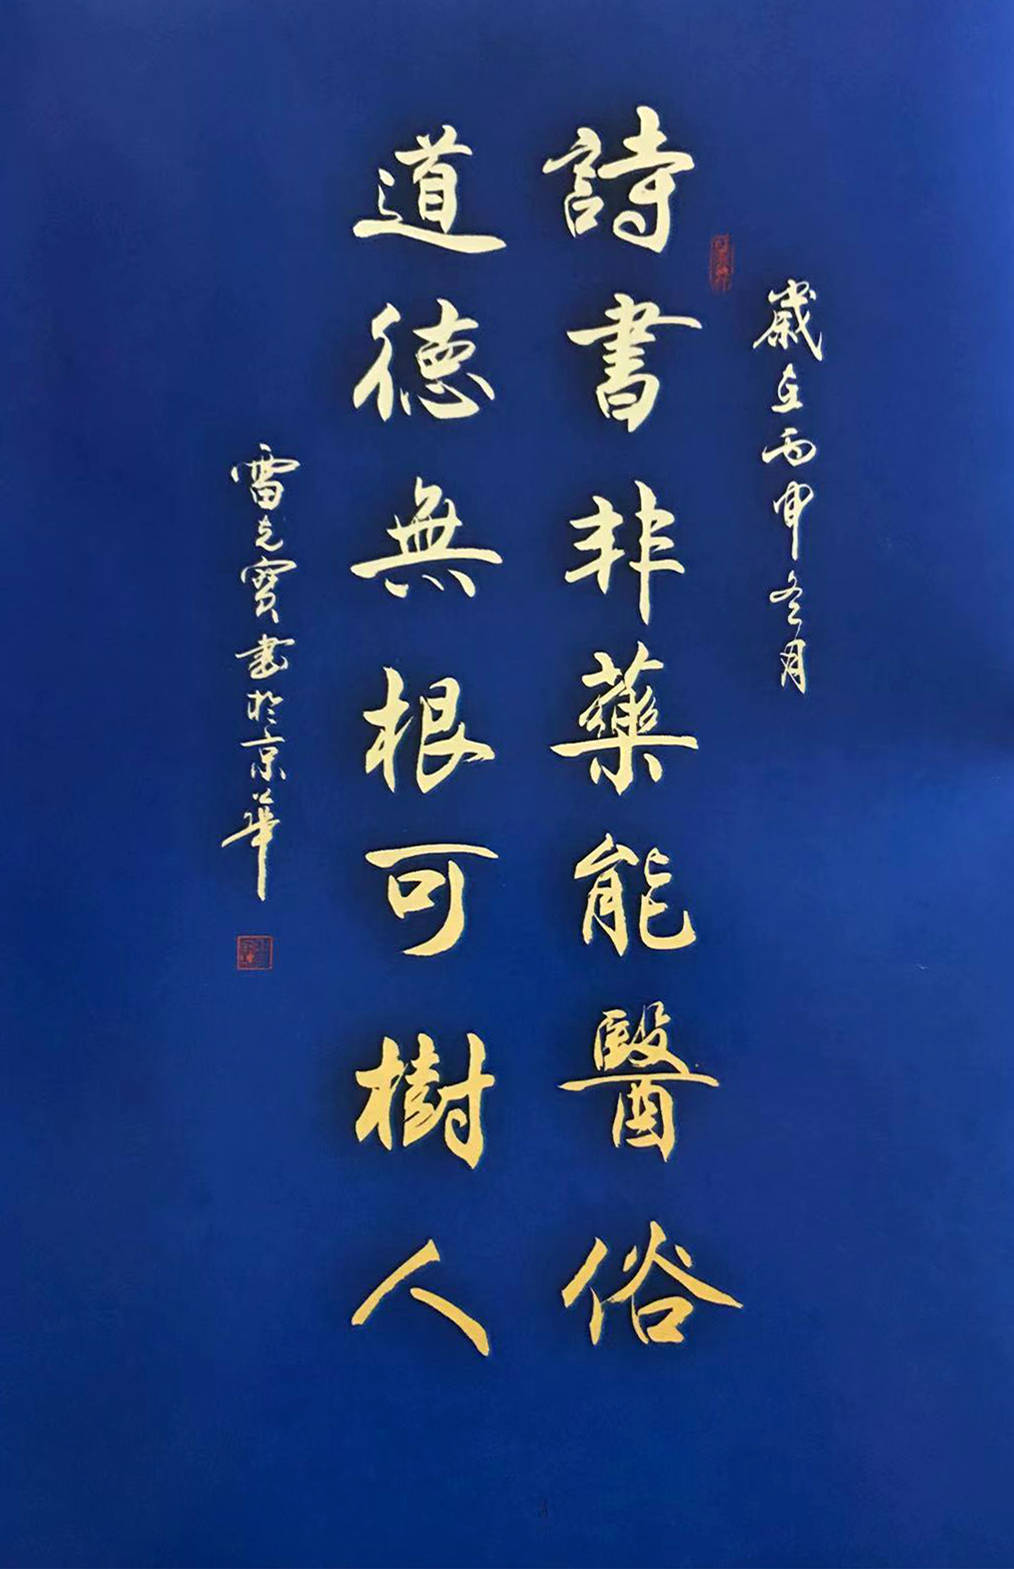 歲在丙申冬月
詩書非藥能醫俗
道德無根可樹人
雷克寶書於京華